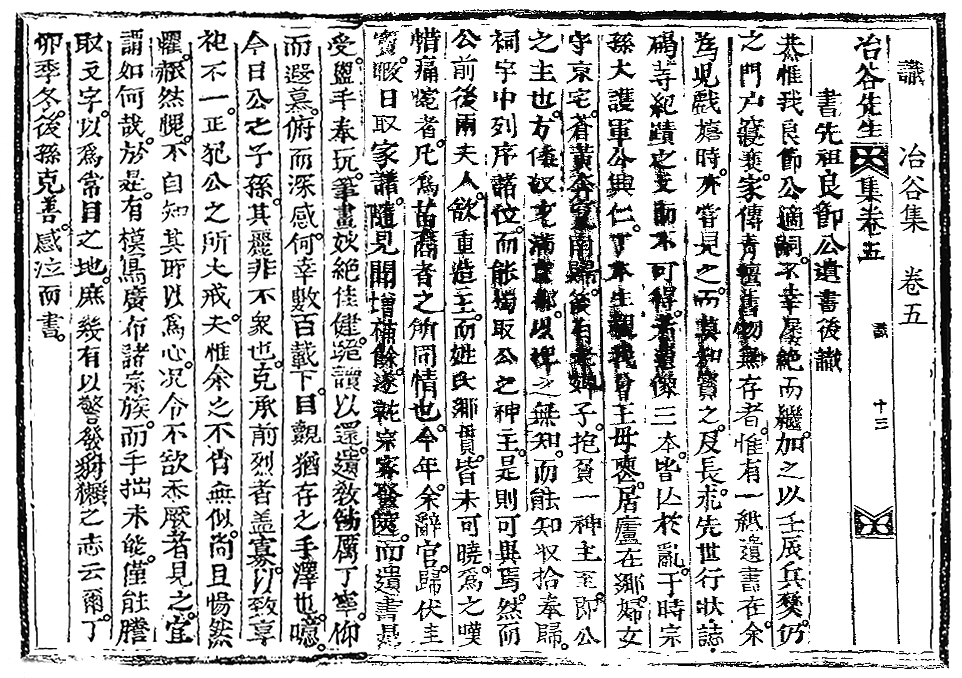 識 冶谷集 卷五
冶谷先生 集卷五 識 十三
書先祖良節公遺書後識
恭惟我良節公適詞不幸屢絶而繼加之以壬辰兵燹仍
之門戶寢衰家傳靑氊舊物無存者惟有一紙遺書在余
爲兒戲嬉時亦嘗見之而莫知寶之及長求先世行狀誌
碣等紀蹟之文而不可得 畫像二本皆亡於亂于時宗
孫大護軍公興仁 王母喪居廬在鄕婦女
守京宅蒼黃 南歸後有老婢子抱負一神主至即公
之主也方倭奴 之無知而能知收拾奉歸
祠宇中列序諸位而能獨取公之神主是則可異焉然而
公前後兩夫人欲重造主而姓氏鄕貫皆未可曉爲之嘆
惜痛惋者凡爲苗裔者之所同情也今年余辭官歸伏圭
竇暇日取家譜隨見聞增補餘遂就宗家發篋而遺書是
受盥手奉玩筆畫妙絶佳健跪讀以還遺敎飭厲丁寧仰
而遐慕俯而深感何幸數百載下目覩猶存之手澤也噫
今日公之子孫其麗非不衆也克承前烈者盖寡以致享
祀不一正犯公之所大戒夫惟余之不肖無似尙且惕然
瞿赧然愧不自知其所以爲心况令不欲忝厥者見之宜
謂如何哉於是有模寫廣布諸宗族而手拙未能僅能謄
取文字以爲常目之地庶幾有以警發豺獺之志云爾丁
卯季冬後孫克善感泣而書